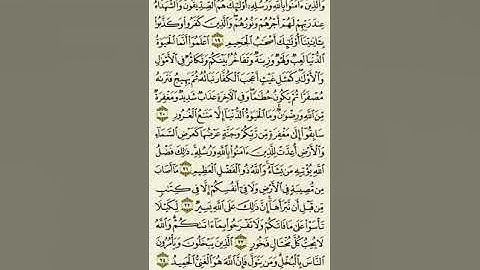 وَٱلَّذِينَ ءَامَنُوا۟ بِٱللَّهِ وَرُسُلِهِۦٓ أُو۟لَٰٓئِكَ هُمُ ٱلصِّدِّيقُونَ وَٱلشُّهَدَآءُ
عِندَ رَبِّهِمْ لَهُمْ أَجْرُهُمْ وَنُورُهُمْ وَٱلَّذِينَ كَفَرُوا۟ وَكَذَّبُوا۟
بِـَٔايَٰتِنَآ أُو۟لَٰٓئِكَ أَصْحَٰبُ ٱلْجَحِيمِ ١٩ ٱعْلَمُوٓا۟ أَنَّمَا ٱلْحَيَوٰةُ
ٱلدُّنْيَا لَعِبٌ وَلَهْوٌ وَزِينَةٌ وَتَفَاخُرٌۢ بَيْنَكُمْ وَتَكَاثُرٌ فِى ٱلْأَمْوَٰلِ
وَٱلْأَوْلَٰدِ كَمَثَلِ غَيْثٍ أَعْجَبَ ٱلْكُفَّارَ نَبَاتُهُۥ ثُمَّ يَهِيجُ فَتَرَىٰهُ
مُصْفَرًّا ثُمَّ يَكُونُ حُطَٰمًا وَفِى ٱلْءَاخِرَةِ عَذَابٌ شَدِيدٌ وَمَغْفِرَةٌ
مِّنَ ٱللَّهِ وَرِضْوَٰنٌ وَمَا ٱلْحَيَوٰةُ ٱلدُّنْيَآ إِلَّا مَتَٰعُ ٱلْغُرُورِ ٢٠
سَابِقُوٓا۟ إِلَىٰ مَغْفِرَةٍ مِّن رَّبِّكُمْ وَجَنَّةٍ عَرْضُهَا كَعَرْضِ ٱلسَّمَآءِ
وَٱلْأَرْضِ أُعِدَّتْ لِلَّذِينَ ءَامَنُوا۟ بِٱللَّهِ وَرُسُلِهِۦ ذَٰلِكَ فَضْلُ
ٱللَّهِ يُؤْتِيهِ مَن يَشَآءُ وَٱللَّهُ ذُو ٱلْفَضْلِ ٱلْعَظِيمِ ٢١ مَآ أَصَابَ
مِن مُّصِيبَةٍ فِى ٱلْأَرْضِ وَلَا فِىٓ أَنفُسِكُمْ إِلَّا فِى كِتَٰبٍ
مِّن قَبْلِ أَن نَّبْرَأَهَآ إِنَّ ذَٰلِكَ عَلَى ٱللَّهِ يَسِيرٌ ٢٢ لِّكَيْلَا
تَأْسَوْا۟ عَلَىٰ مَا فَاتَكُمْ وَلَا تَفْرَحُوا۟ بِمَآ ءَاتَىٰكُمْ وَٱللَّهُ
لَا يُحِبُّ كُلَّ مُخْتَالٍ فَخُورٍ ٢٣ ٱلَّذِينَ يَبْخَلُونَ وَيَأْمُرُونَ
ٱلنَّاسَ بِٱلْبُخْلِ وَمَن يَتَوَلَّ فَإِنَّ ٱللَّهَ هُوَ ٱلْغَنِىُّ ٱلْحَمِيدُ ٢٤